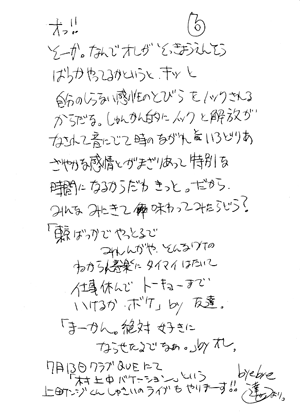 ⑥
オッ!!
そーか。なんでオレが そっきょうえんそう
ばっかやってるかというと、キッと
自分のしらない感性のとびらをノックされる
からだな。しゅんかん的にノックと解放が
なされて音にでて時のながれといろどりあ
ざやかな感情とがまざりあって特別な
時間になるからだわ きっと。だから、
みんな みにきて 味わってみたらどう?
「東京ばっかでやっとるで
みれんがや、そんなワケの
わからん音楽にタイマイはたいて
仕事休んでトーキョーまで
いけるか、ボケ」by 友達。
「まーかん。絶対 好きに
ならせたるでなぁ。」by オレ。
7月13日クラブQUEにて
「村上中バケーション」という
上田ケンジくんしゅさいのライブもやりまーす!!
byebye
達 より。